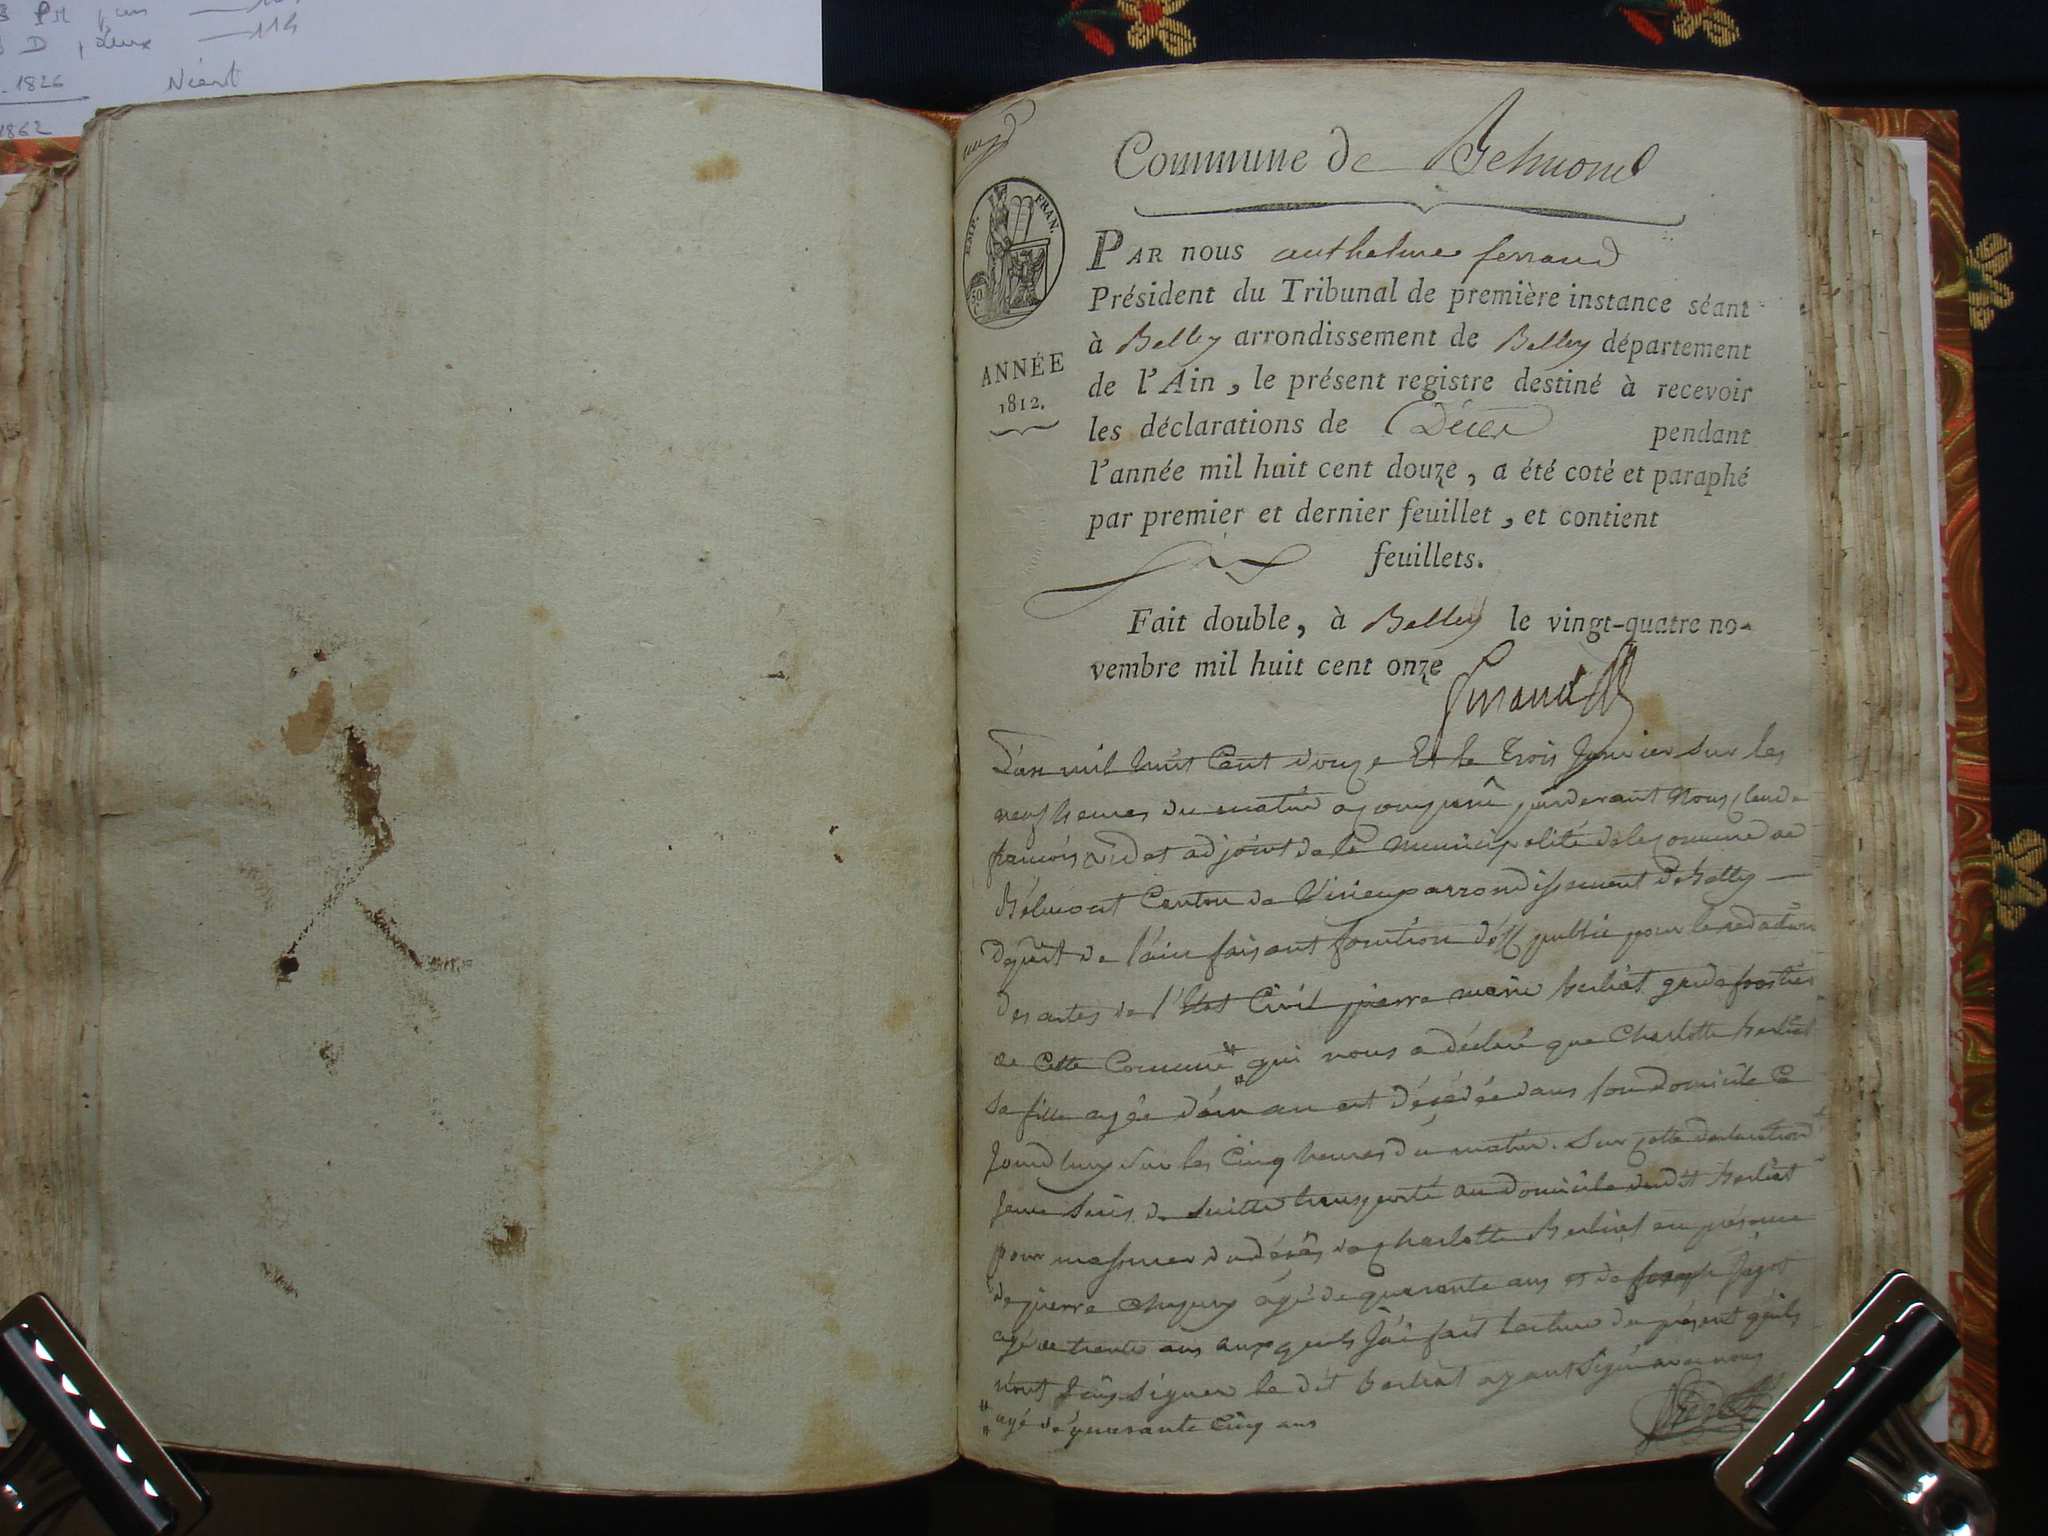 1826 Néant
1862
114
Commune de Belmond
EMP. FRAN.
50
ANNÉE
1812.
PAR nous anthelme ferrand
Président du Tribunal de première instance séant
à Belley arrondissement de Belley département
de l'Ain, le présent registre destiné à recevoir
les déclarations de Décès pendant
l'année mil huit cent douze, a été coté et paraphé
par premier et dernier feuillet, et contient
six feuillets.
Fait double, à Belley le vingt-quatre no-
vembre mil huit cent onze
ferrand
L'an mil huit Cent douze Et le trois Janvier sur les
neuf heures du matin a comparu pardevant Nous claude
francois adjoint de la municipalité de la comune de
Belmont Canton de Virieu arrondissement de belley
depart de l'ain faisant fonction d'off public pour la redaction
des actes de l'Etat Civil pierre marie berliat garde forestier
de Cette Comune # qui nous a déclaré que Charlotte berliat
sa fille agée d'un an est désédée dans son domicile ce
Jourdhuy sur les Cinq heures du matin. Sur cette declaration
Jeme suis de suitte transporté au domicile dudit berliat
pour massurer du désès de charlotte Berliat en présence
de pierre age de quarante ans et de Joseph Jagot
agé de trente ans auxquels J'ai fait lecture du présent qu'ils
n'ont signer le dit berliat ayant signé avec nous
# agé de quarante Cinq ans